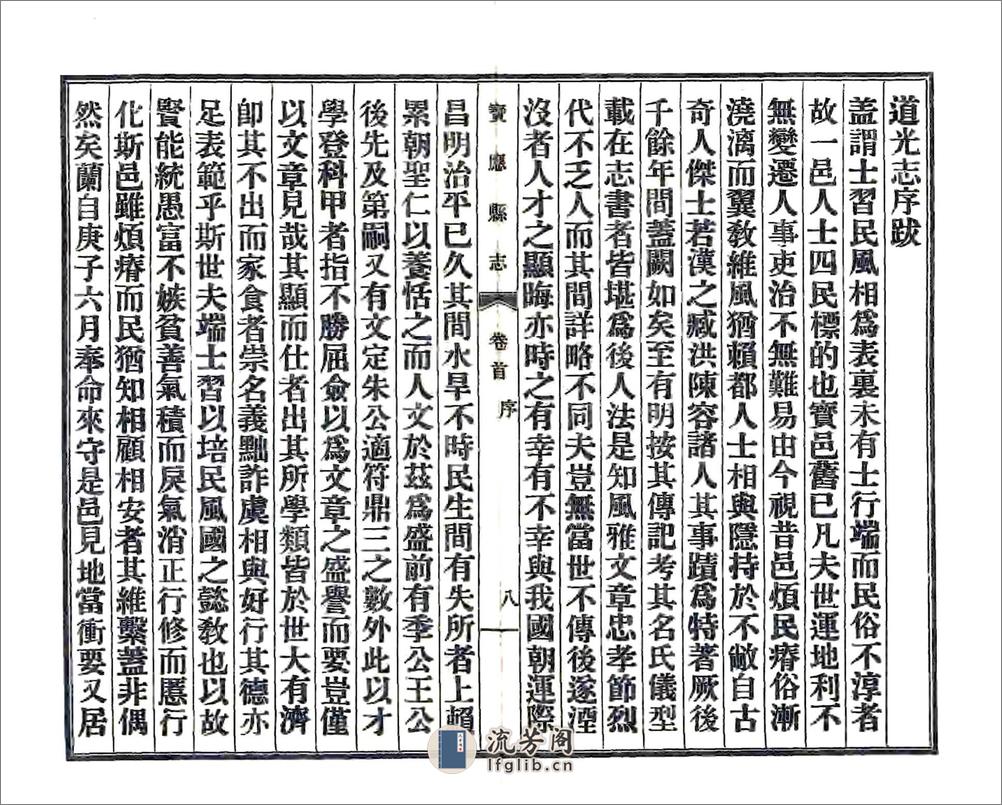 道光志序跋
蓋謂士習民風相爲表裏未有士行端而民俗不淳者
故一邑人士四民標的也寶邑舊已凡夫世運地利不
無變遷人事吏治不無難易由今視昔邑煩民瘠俗漸
澆漓而翼敎維風猶賴都人士相與隱持於不敝自古
奇人傑士若漢之臧洪陳容諸人其事蹟爲特著厥後
千餘年間蓋闕如矣至有明按其傳記考其名氏儀型
載在志書者皆堪爲後人法是知風雅文章忠孝節烈
代不乏人而其間詳略不同夫豈無當世不傳後遂湮
沒者人才之顯晦亦時之有幸有不幸與我國朝運際
寶應縣志 卷首 序 八
昌明治平已久其間水旱不時民生間有失所者上賴
累朝聖仁以養恬之而人文於茲爲盛前有季公王公
後先及第嗣又有文定朱公適符鼎三之數外此以才
學登科甲者指不勝屈僉以爲文章之盛譽而要豈僅
以文章見哉其顯而仕者出其所學類皆於世大有濟
卽其不出而家食者崇名義黜詐虞相與好行其德亦
足表範乎斯世夫端士習以培民風國之懿敎也以故
賢能統愚富不嫉貧善氣積而戾氣消正行修而慝行
化斯邑雖煩瘠而民猶知相顧相安者其維繫蓋非偶
然矣蘭自庚子六月奉命來守是邑見地當衝要又居
流芳閣
lfglib.cn